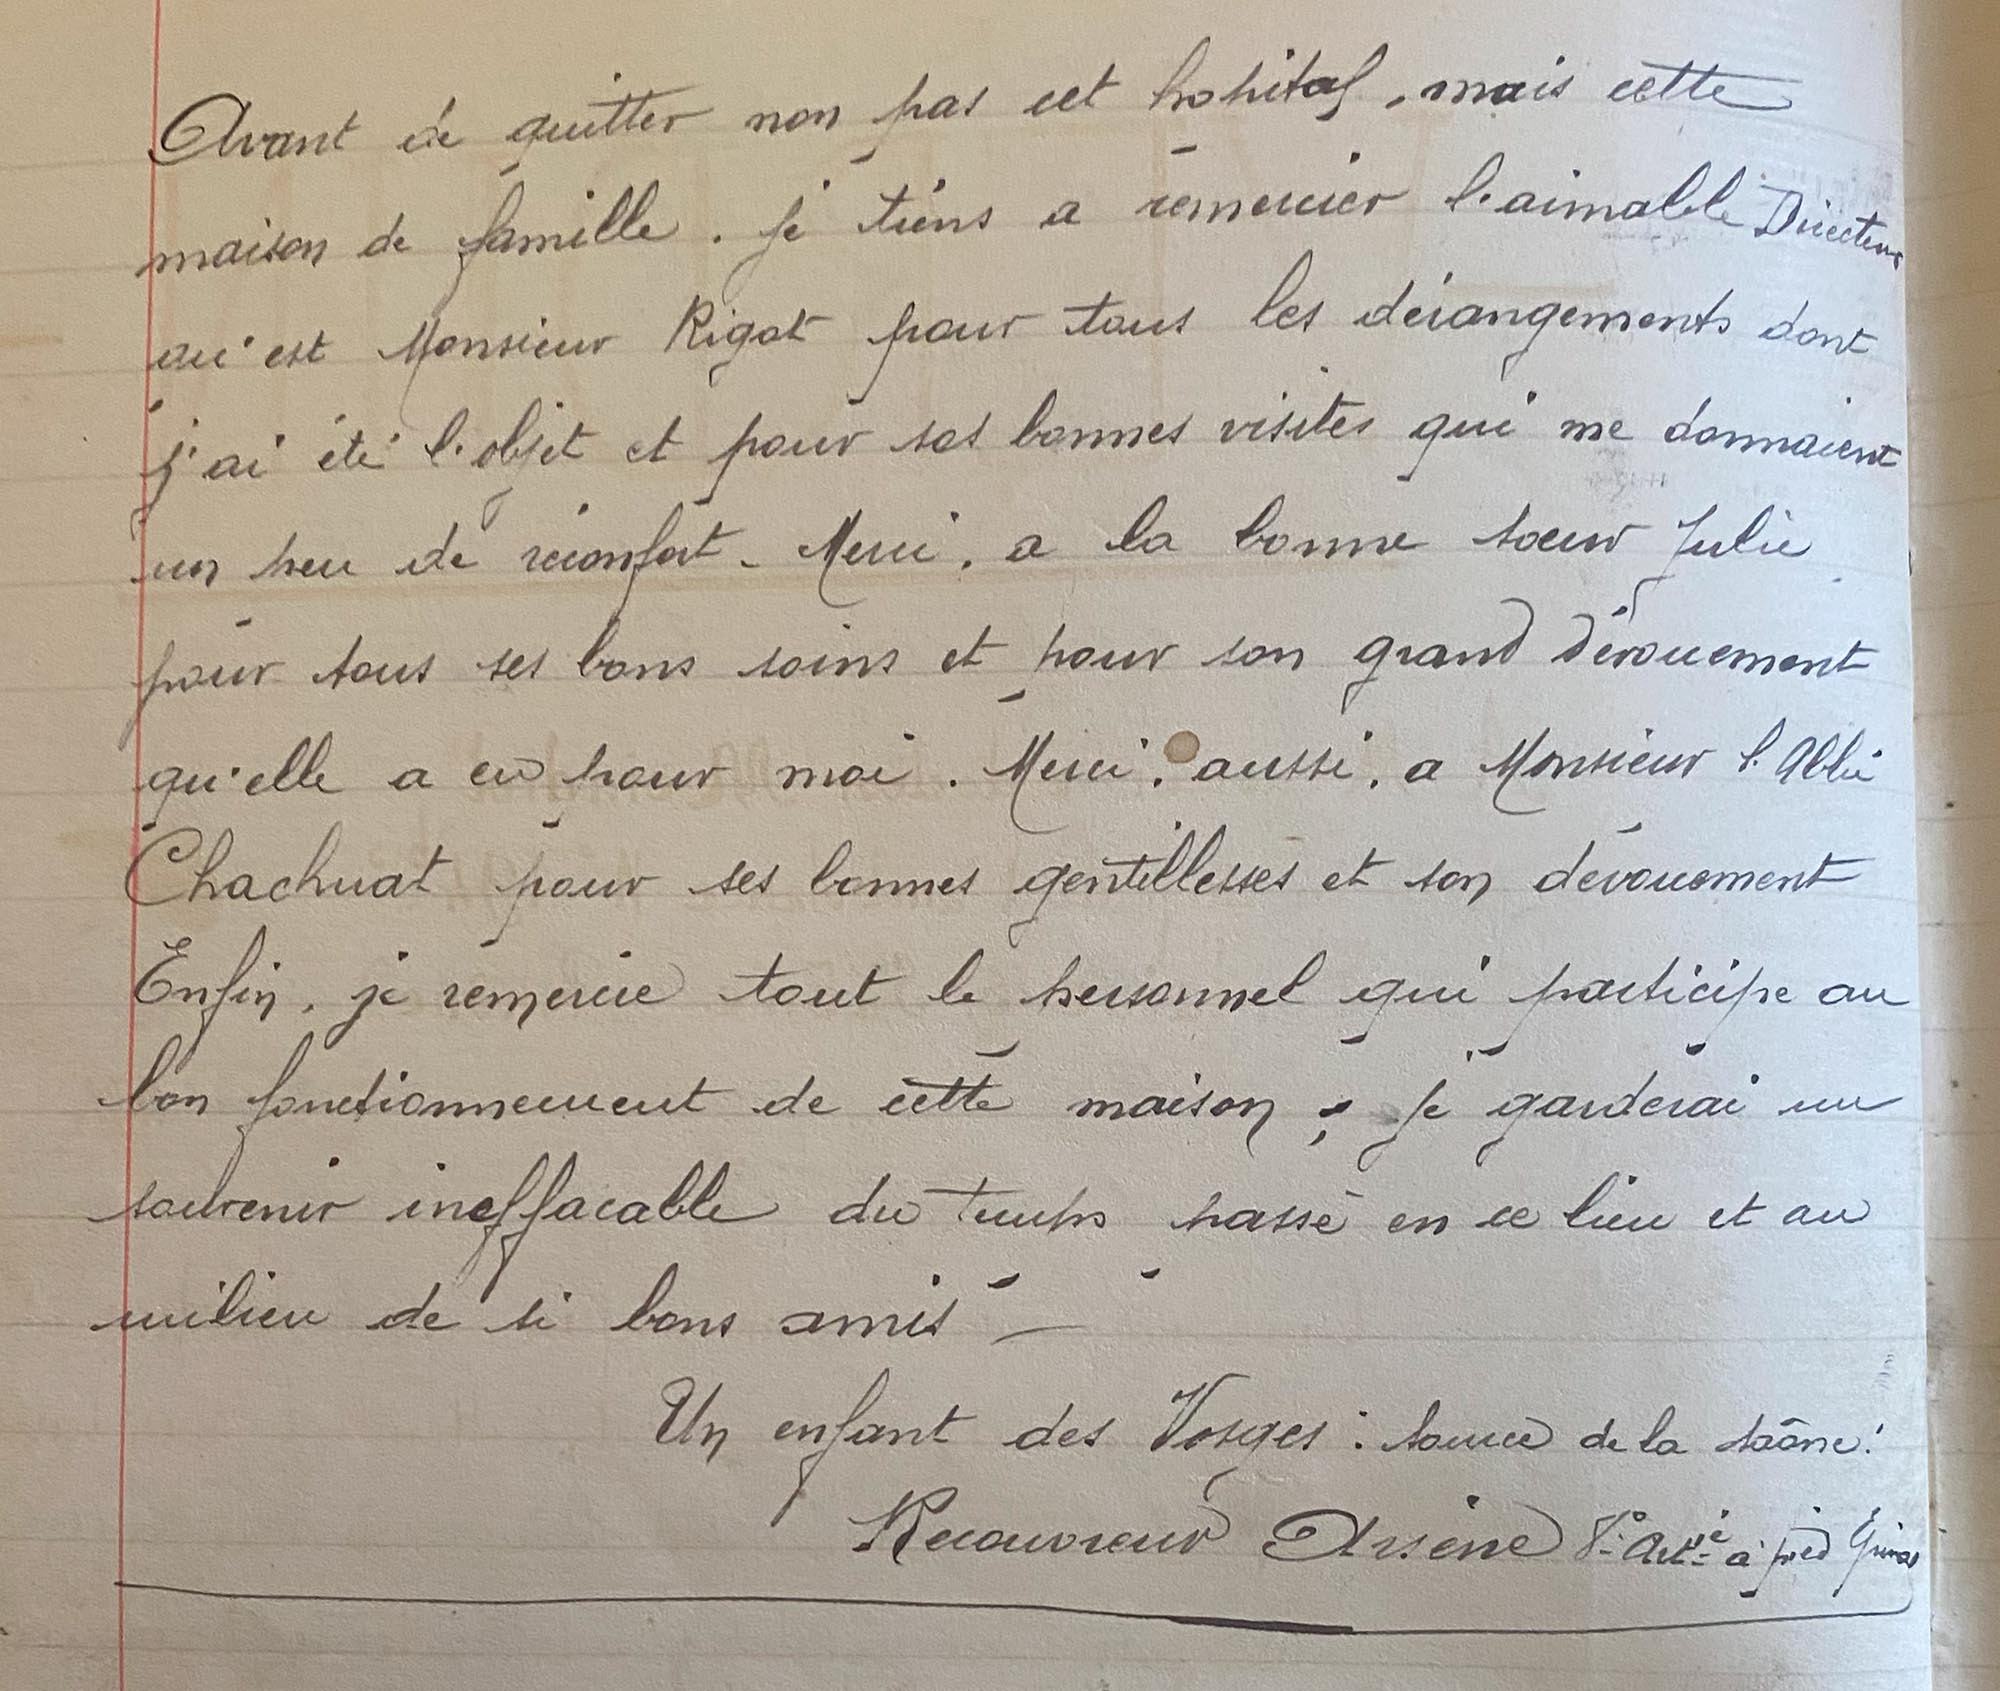 Avant de quitter non pas cet hopital, mais cette
maison de famille. je tiens a remercier l'aimable Directeur
qu'est Monsieur Rigot pour tous les dérangements dont
j'ai été l'objet et pour ses bonnes visites qui me donnaient
un peu de réconfort. Merci, a la bonne sœur Julie
pour tous ses bons soins et pour son grand dévouement
qu'elle a eu pour moi. Merci, aussi, a Monsieur l'Abbé
Chachuat pour ses bonnes gentillesses et son dévouement
Enfin, je remercie tout le personnel qui participe au
bon fonctionnement de cette maison; je garderai un
souvenir ineffacable du temps passé en ce lieu et au
milieu de si bons amis —
Un enfant des Vosges: source de la Saône!
Recouvreur Arsène 8e Artie à pied Epinal